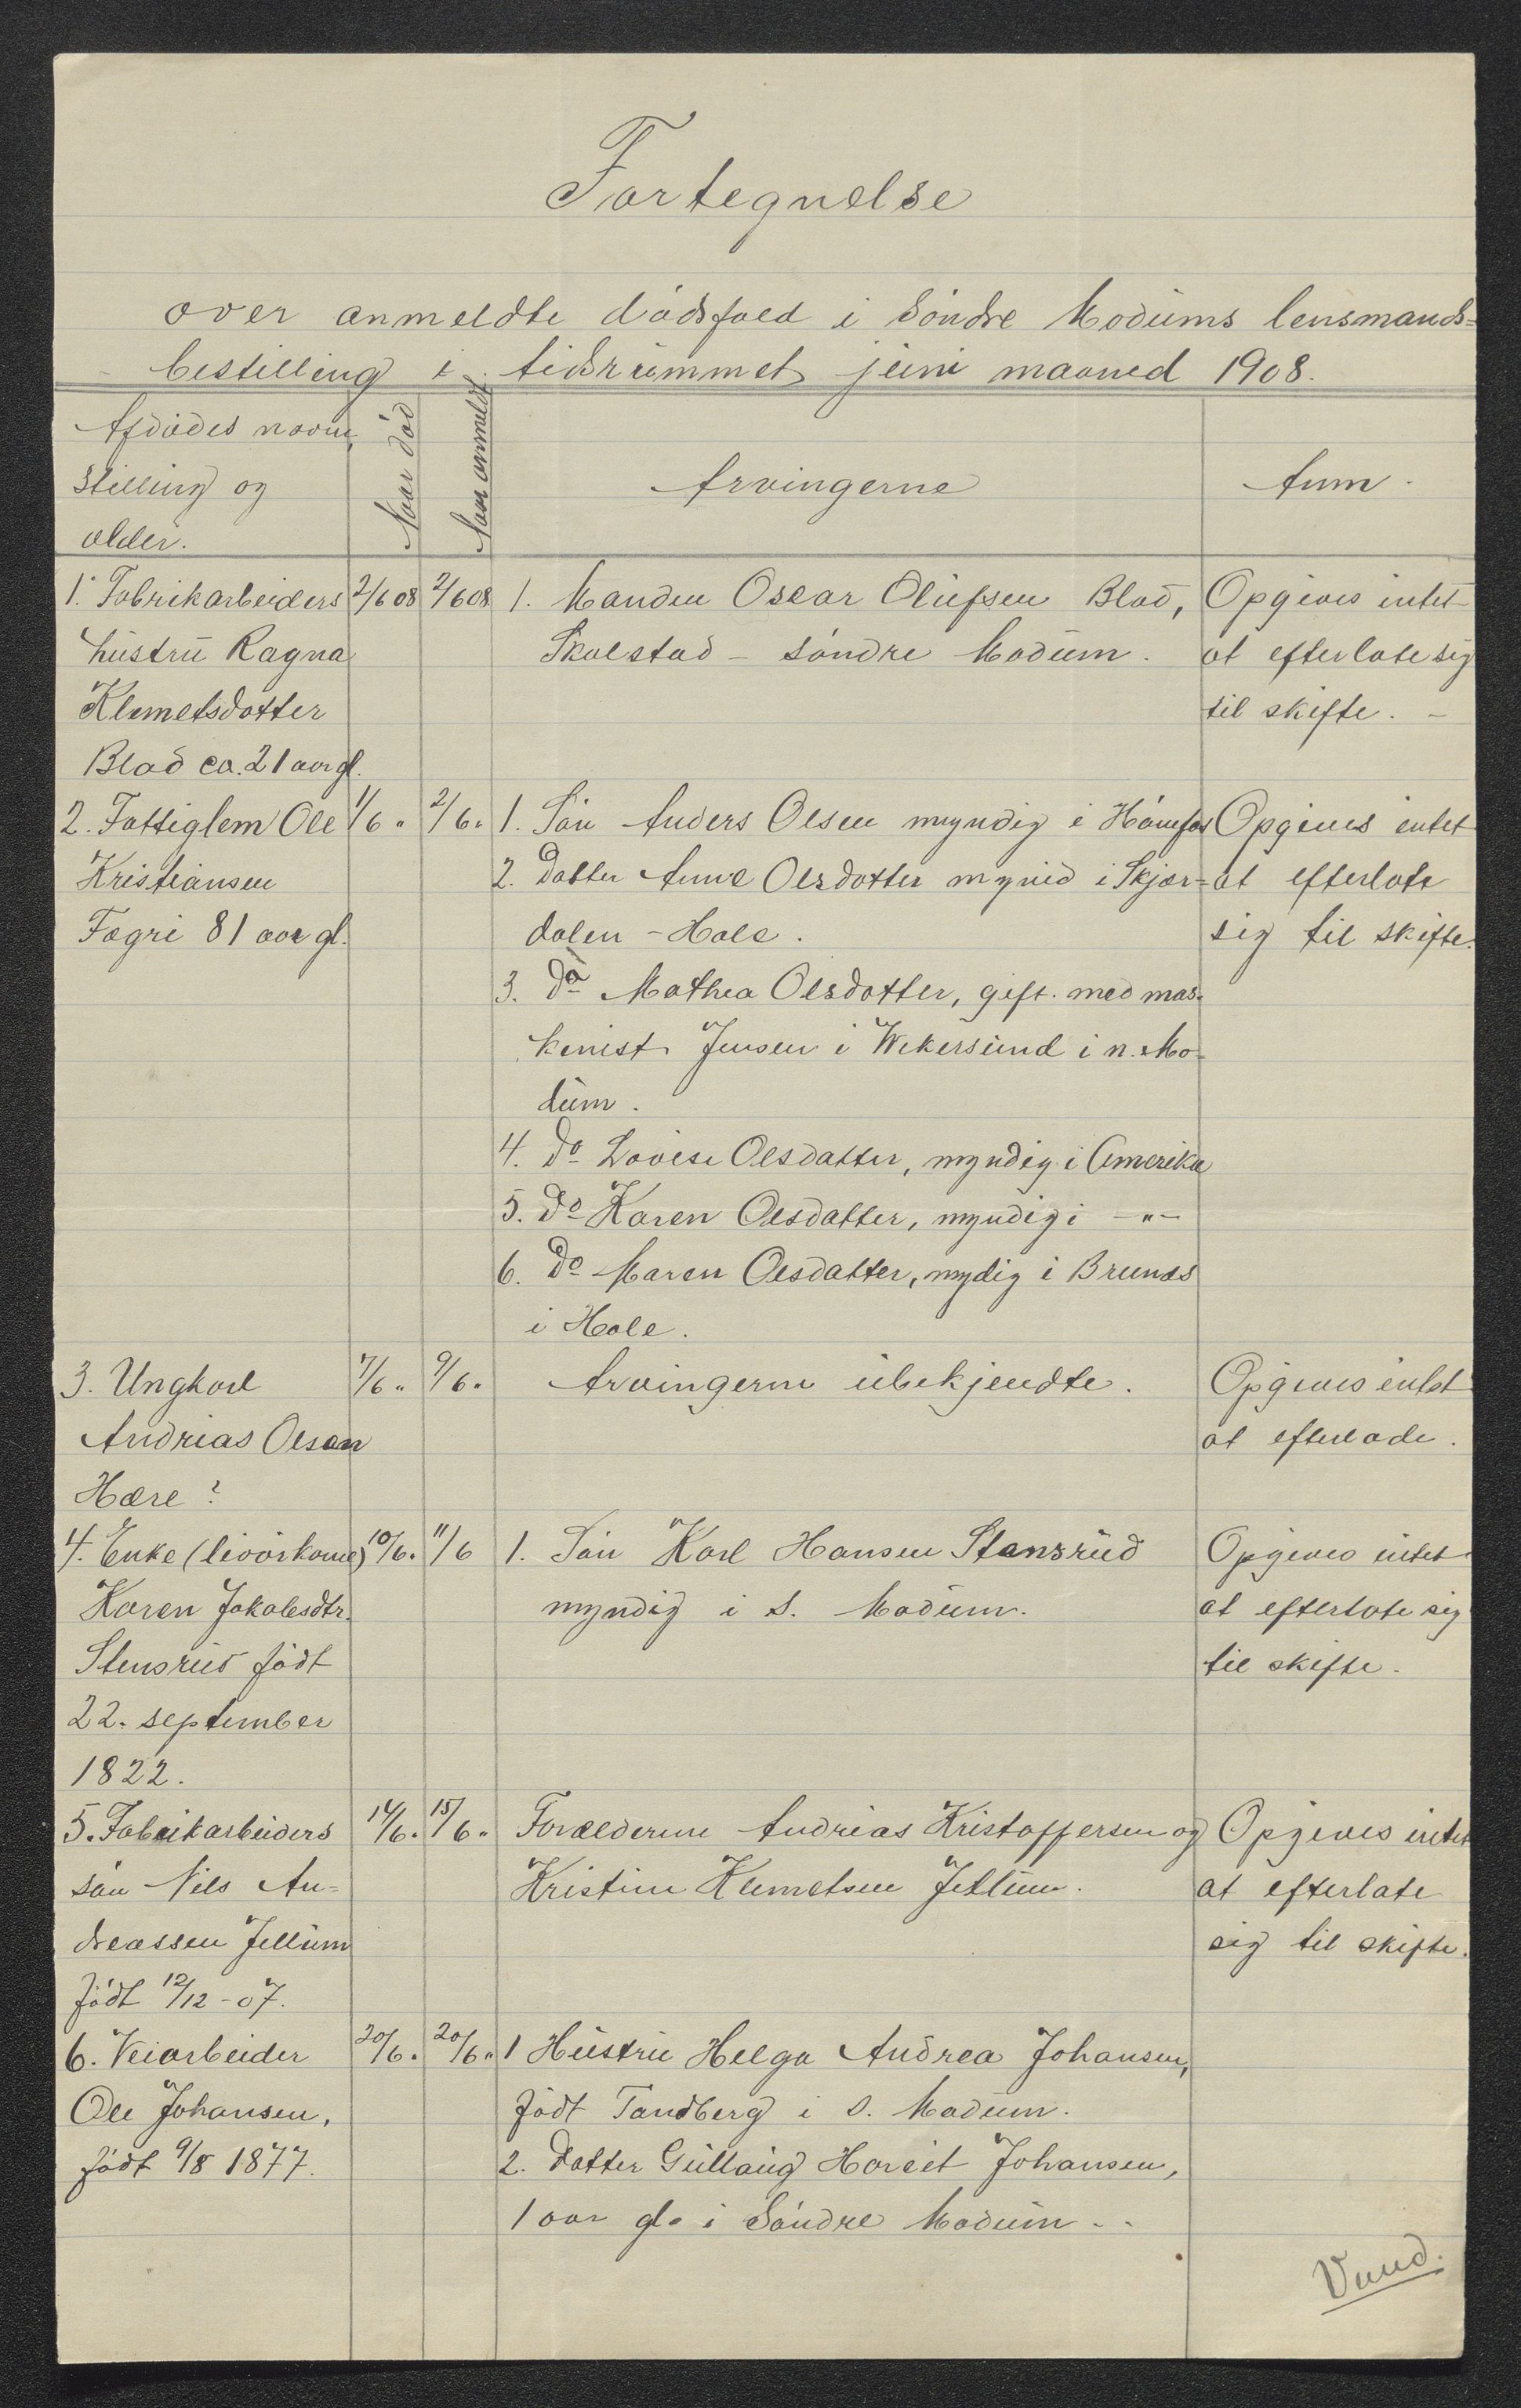 Fortegnelse
over anmeldte dödsfald i Söndre Modums lensmands=
bestilling i tidsrummet juni maaned 1908.
Afdödes navn,
stilling og
alder.
Naar död
Naar anmeldt
Arvingerne
Anm.
1. Fabrikarbeiders
hustru Ragna
Klemetsdatter
Blad ca. 21 aar gl.
2/6 08
2/6 08
1. Manden Oscar Olufsen Blad,
Skalstad - söndre Modum.
Opgives intet
at efterlate sig
til skifte. -
2. Fattiglem Ole
Kristiansen
Fagri 81 aar gl.
1/6 "
2/6 "
1. Sön Anders Olsen myndig i Hönefos
2. Datter Anne Olsdatter mynd i Skjær=
dalen - Hole.
3. Do Mathea Olsdatter, gift. med mas=
kinist Jensen i Vikersund i n. Mo=
dum.
4. Do Lovise Olsdatter, myndig i Amerika
5. Do Karen Olsdatter, myndig i -"-
6. Do Maren Olsdatter, mydig i Brunæs
i Hole.
Opgives intet
at efterlate
sig til skifte.
3. Ungkarl
Andrias Olsen
Hære?
7/6 "
9/6 "
Arvingerne ubekjendte.
Opgives intet
at efterlade.
4. Enke (livörkone)
Karen Jakobsdtr.
Stensrud födt
22. september
1822.
10/6 "
11/6
1. Sön Karl Hansen Stensrud
myndig i S. Modum.
Opgives intet
at efterlate sig
til skifte.
5. Fabrikarbeiders
sön Nils An=
dreassen Jellum
födt 12/12 - 07.
14/6 "
15/6 "
Forælderne Andreas Kristoffersen og
Kristine Klemetsen Jellum.
Opgives intet
at efterlate
sig til skifte.
6. Veiarbeider
Ole Johansen,
födt 9/8 1877.
20/6 "
20/6 "
1 Hustru Helga Andrea Johansen,
födt Tandberg i S. Modum.
2. Datter Gullaug Hariet Johansen,
1 aar gl. i Söndre Modum - -
Vend.